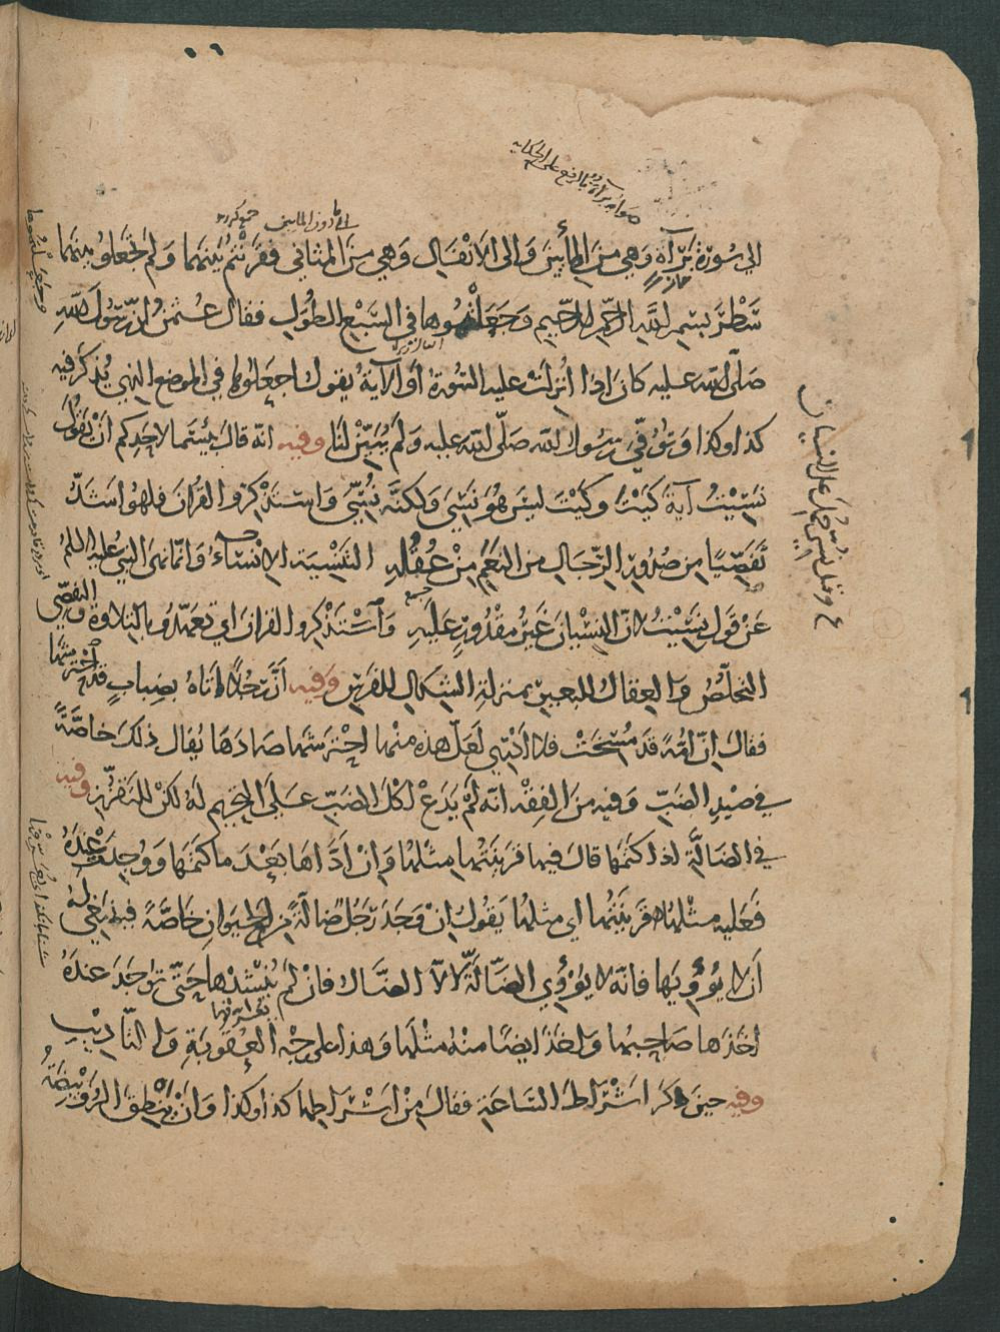 صوابه برآةٌ بالرفع على الحكاية
اى ما دون المايين
الى سُورَة بَرَآةَ وَهي مِنَ المِأيينَ وَالى الاَنْفَالِ وَهي مِنَ المثاني فقَرَنْتُم بَيْنَهُما وَلم تجْعَلوُا بينهُما
سَطْرَ بِسْمِ اللهِ الرَّحمنِ الرَّحِيمِ وَجَعَلْتُمُوها في السَّبْعِ الطُّوَلِ فقال عُثمن اِنّ رَسُولَ اللهِ
صَلّى اللهُ عليه كانَ اِذَا اُنْزِلَتْ عليه السُّورَةُ أو الآيةُ يقولُ اجعَلوُها في الموضِعِ الذي يُذكَرُ فيه
كذا وكذا وَتُوُفِّيَ رَسُولُ اللهِ صَلّى الله عليه وَلم يُبَيِّنْ لنَا وفيه انّه قالَ بِئْسَما لاحَدِكم أنْ يَقُولَ
نَسِيْتُ آيةَ كَيْتَ وكَيْتَ ليسَ هُوَ نَسِيَ وَلكنَّه نُسِّيَ وَاسْتَذْكِرُوا القرآنَ فلهُو اَشَدُّ
تَفَصِّيًا مِن صُدُورِ الرِّجَالِ من النَّعَمِ مِنْ عُقُلِهِ التَّنْسِيَة الاِنْسَاءُ وَانّما نهى النبيُّ عليه السلمُ
عَنْ قولِ نَسِيْتُ لانّ النِّسْيانَ غَيْرُ مقْدُورٍ عَلَيْهِ وَاسْتَذْكِرُوا القرانَ اي تعَهّدُوه بالتِّلاوةِ والتفصّي
التخلّصُ وَالعِقالُ للبعيرِ بمنزلةِ الشِّكالِ للفَرَسِ وَفيه أنَّ رَجُلًا اَتاهُ بِضِبابٍ قدِ احْتَرَشَها
فقالَ اِنّ اُمّةً قد مُسِخَتْ فلا ادْرِي لَعَلَّ هذه منْها اِحْتَرَشَها صَادَها يُقال ذلكَ خاصّةً
في صَيْدِ الضَّبِّ وَفيه مِنَ الفِقْهِ انّه لَمْ يَدَعْ اَكْلَ الضَّبِّ عَلَى التحْرِيمِ لَهُ لكنْ للتقزُّزِ وفيه
في الضالَّةِ اذا كتَمَها قالَ فيها قَرِينَتُها مِثْلُها وَاِنْ اَدَّاهَا بَعْدَ ما كتَمَها وَوُجِدَتْ عِنْدَهُ
فَعليه مِثْلُها قَرينَتُها اي مثلُها يَقُولُ اِنْ وَجَدَ رَجُلٌ ضالّةً مِنَ الحيَوانِ خَاصّةً فيَنبَغي لهُ
اَن لا يُؤْوِيَها فانّه لا يُؤْوِي الضّالّةَ الاّ الضّالُّ فانْ لم يُنْشِدْها حَتّى تُوجَدَ عندَهُ
اَخَذَها صَاحِبُها وَاخَذَ ايضًا منْهُ مثْلَها وَهذا على وَجْهِ العُقُوبَةِ وَالتّاديبِ
وفيه حينَ ذكَرَ اَشْرَاطَ السّاعَةِ فقالَ مِنْ اَشْرَاطِها كذا وكذا وَاَنْ يَنْطِقَ الرُّوَيْبِضَةُ